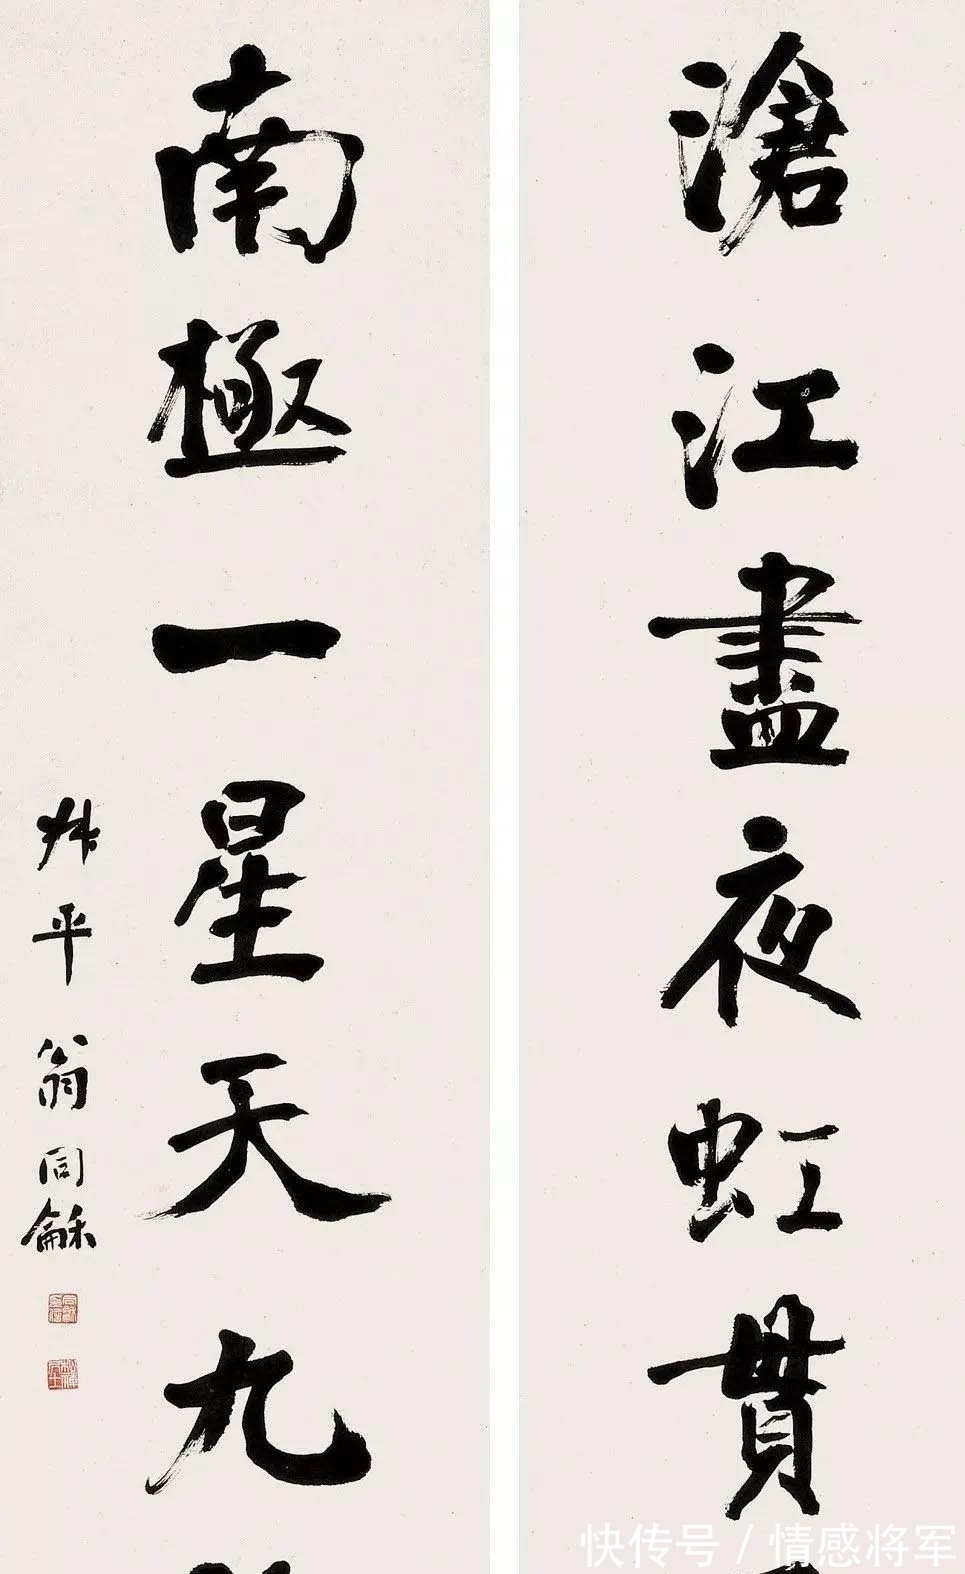 滄江盡夜虹貫
南極一星天九
叔平翁同龢
快传号 / 情感将军